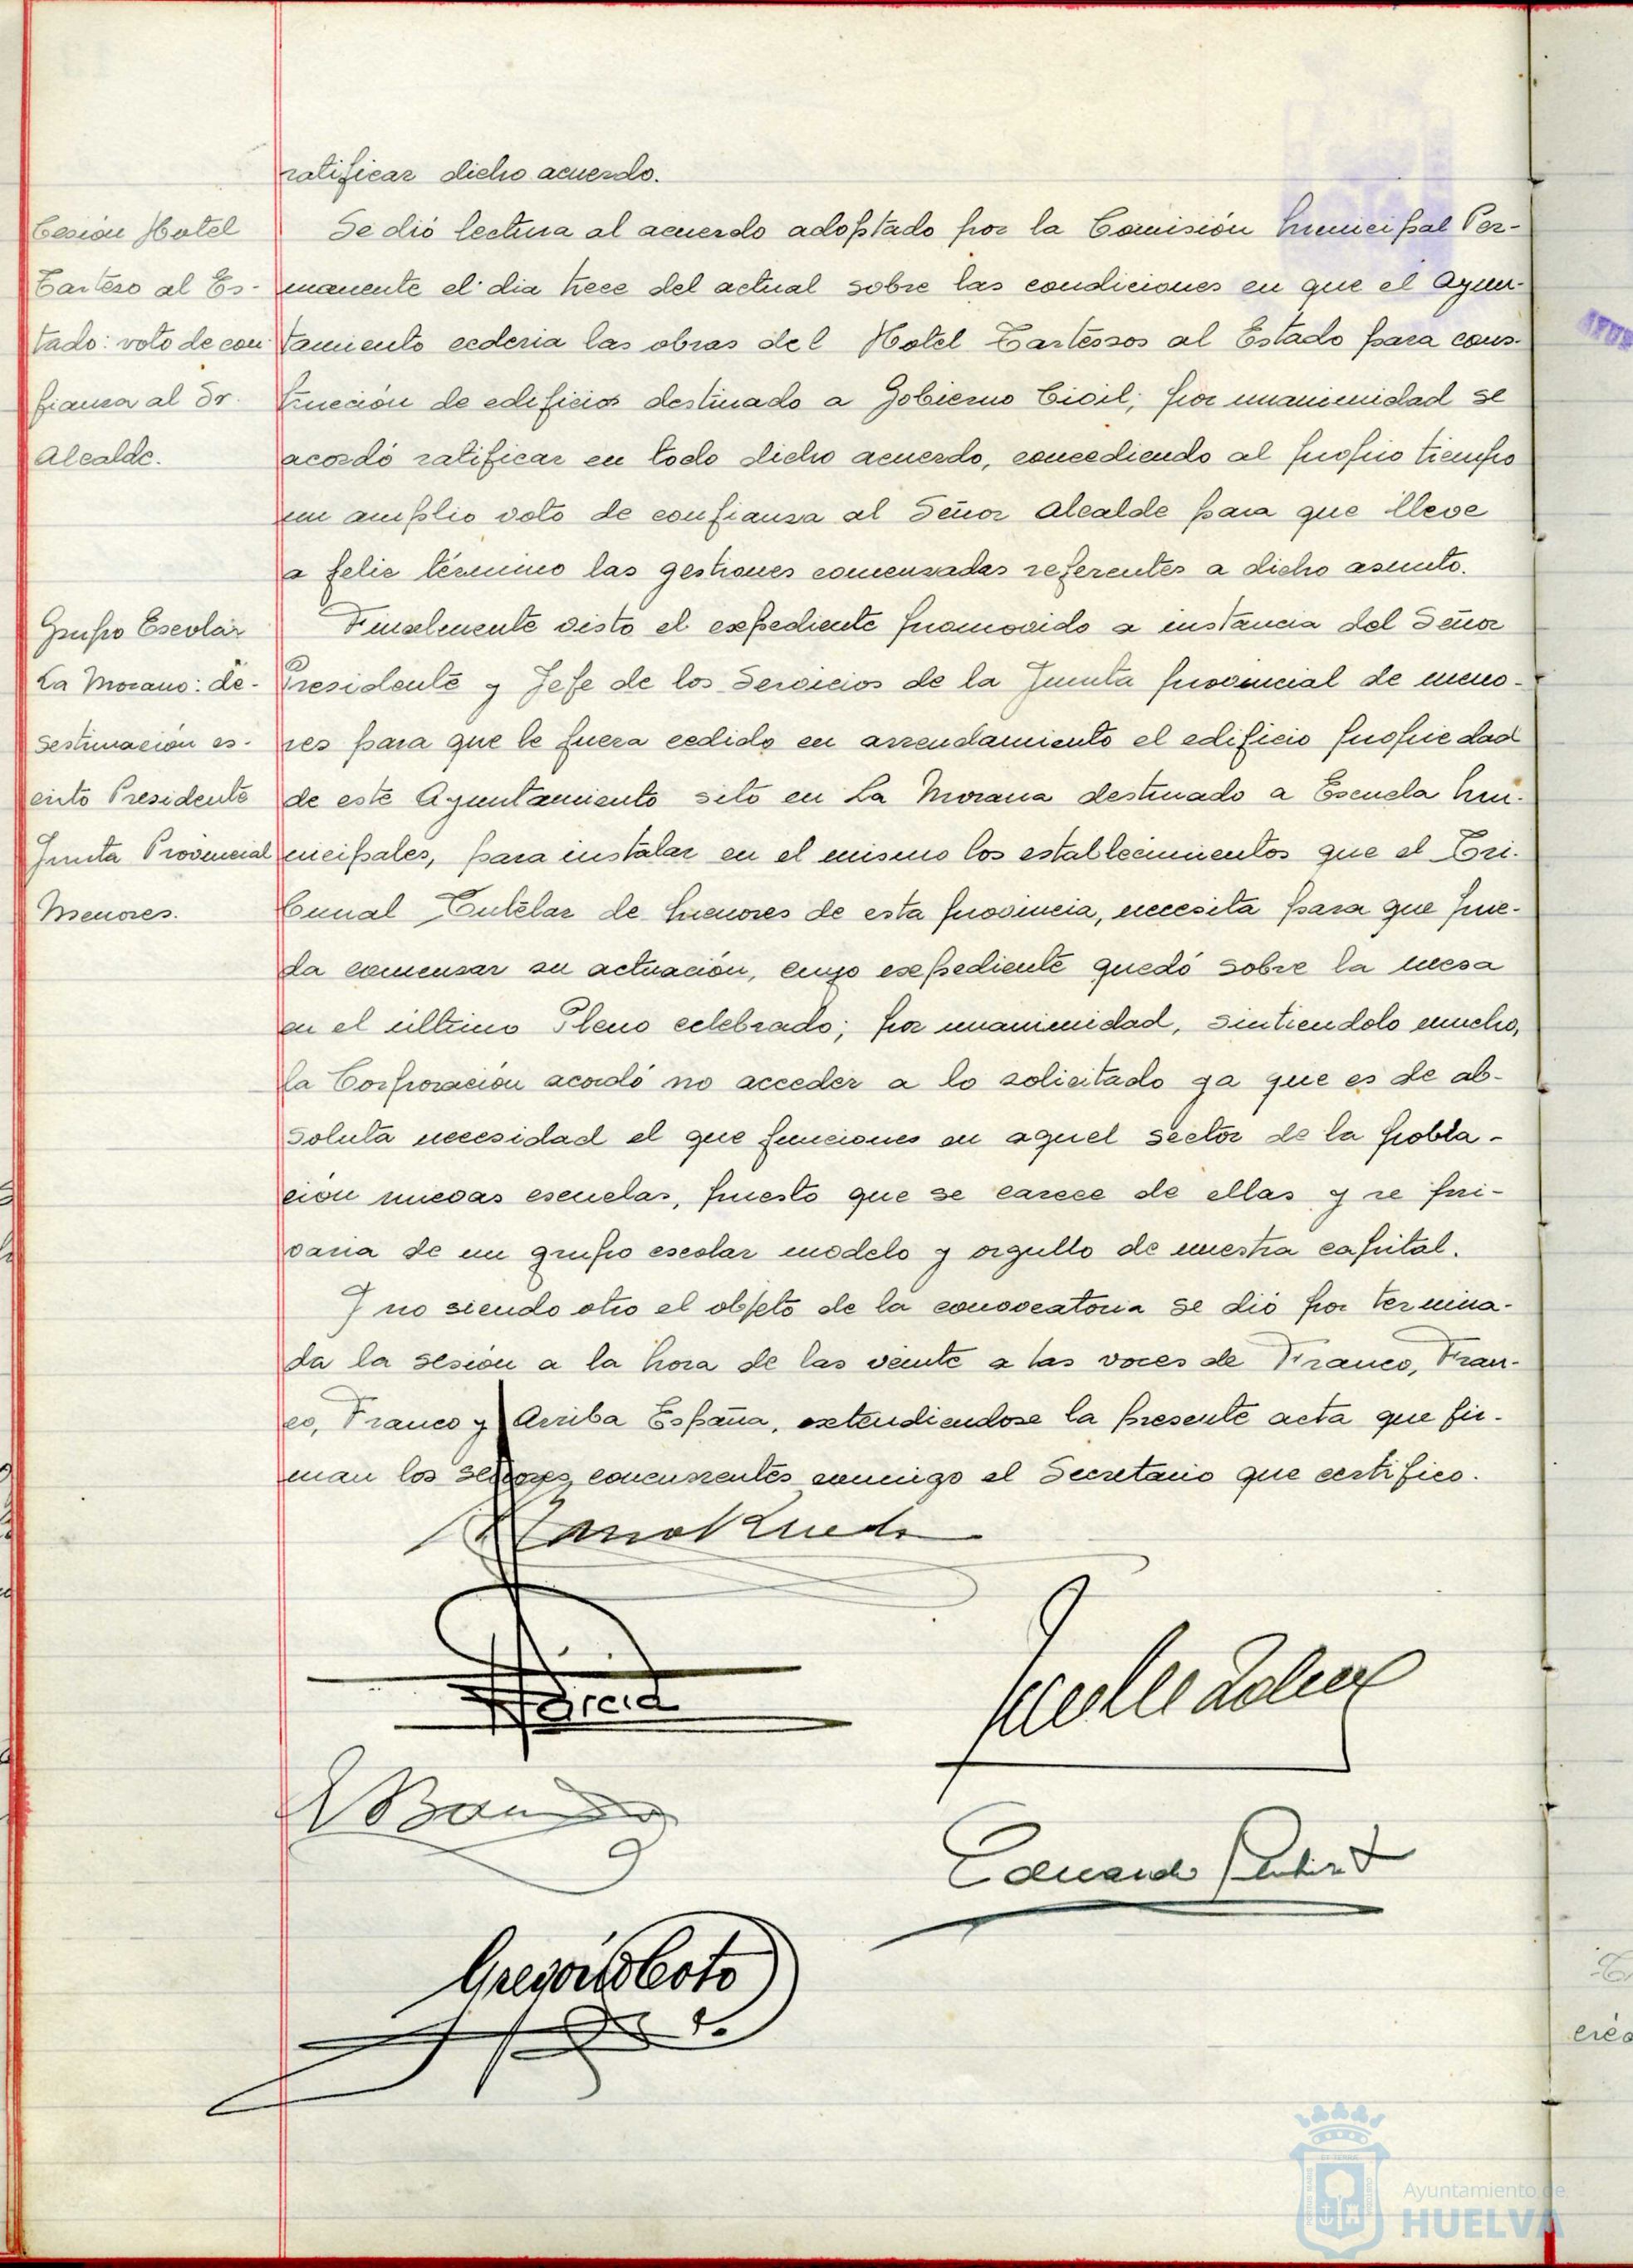 ratificar dicho acuerdo.
Cesión Hotel
Tarteso al Es-
tado: voto de con
fianza al Sr.
Alcalde.
Se dió lectura al acuerdo adoptado por la Comisión Municipal Per-
manente el dia trece del actual sobre las condiciones en que el Ayun-
tamiento cederia las obras del Hotel Tartessos al Estado para cons-
trucción de edificios destinado a Gobierno Civil; por unanimidad se
acordó ratificar en todo dicho acuerdo, concediendo al propio tiempo
un amplio voto de confianza al Señor Alcalde para que lleve
a feliz término las gestiones comenzadas referentes a dicho asunto.
Grupo Escolar
La Morana: de-
sestimación es-
crito Presidente
Junta Provincial
Menores.
Finalmente visto el expediente promovido a instancia del Señor
Presidente y Jefe de los Servicios de la Junta provincial de meno-
res para que le fuera cedido en arrendamiento el edificio propiedad
de este Ayuntamiento sito en La Morana destinado a Escuela Mu-
nicipales, para instalar en el mismo los establecimientos que el Tri-
bunal Tutelar de Menores de esta provincia, necesita para que pue-
da comenzar su actuación, cuyo expediente quedó sobre la mesa
en el último Pleno celebrado; por unanimidad, sintiendolo mucho,
la Corporación acordó no acceder a lo solicitado ya que es de ab-
soluta necesidad el que funciones en aquel sector de la pobla-
ción nuevas escuelas, puesto que se carece de ellas y se pri-
varia de un grupo escolar modelo y orgullo de nuestra capital.
Y no siendo otro el objeto de la convocatoria se dió por termina-
da la sesión a la hora de las veinte a las voces de Franco, Fran-
co, Franco y Arriba España, extendiendose la presente acta que fir-
man los señores concurrentes conmigo el Secretario que certifico.
Garcia
Eduardo
Gregorio Coto
Ayuntamiento de
HUELVA